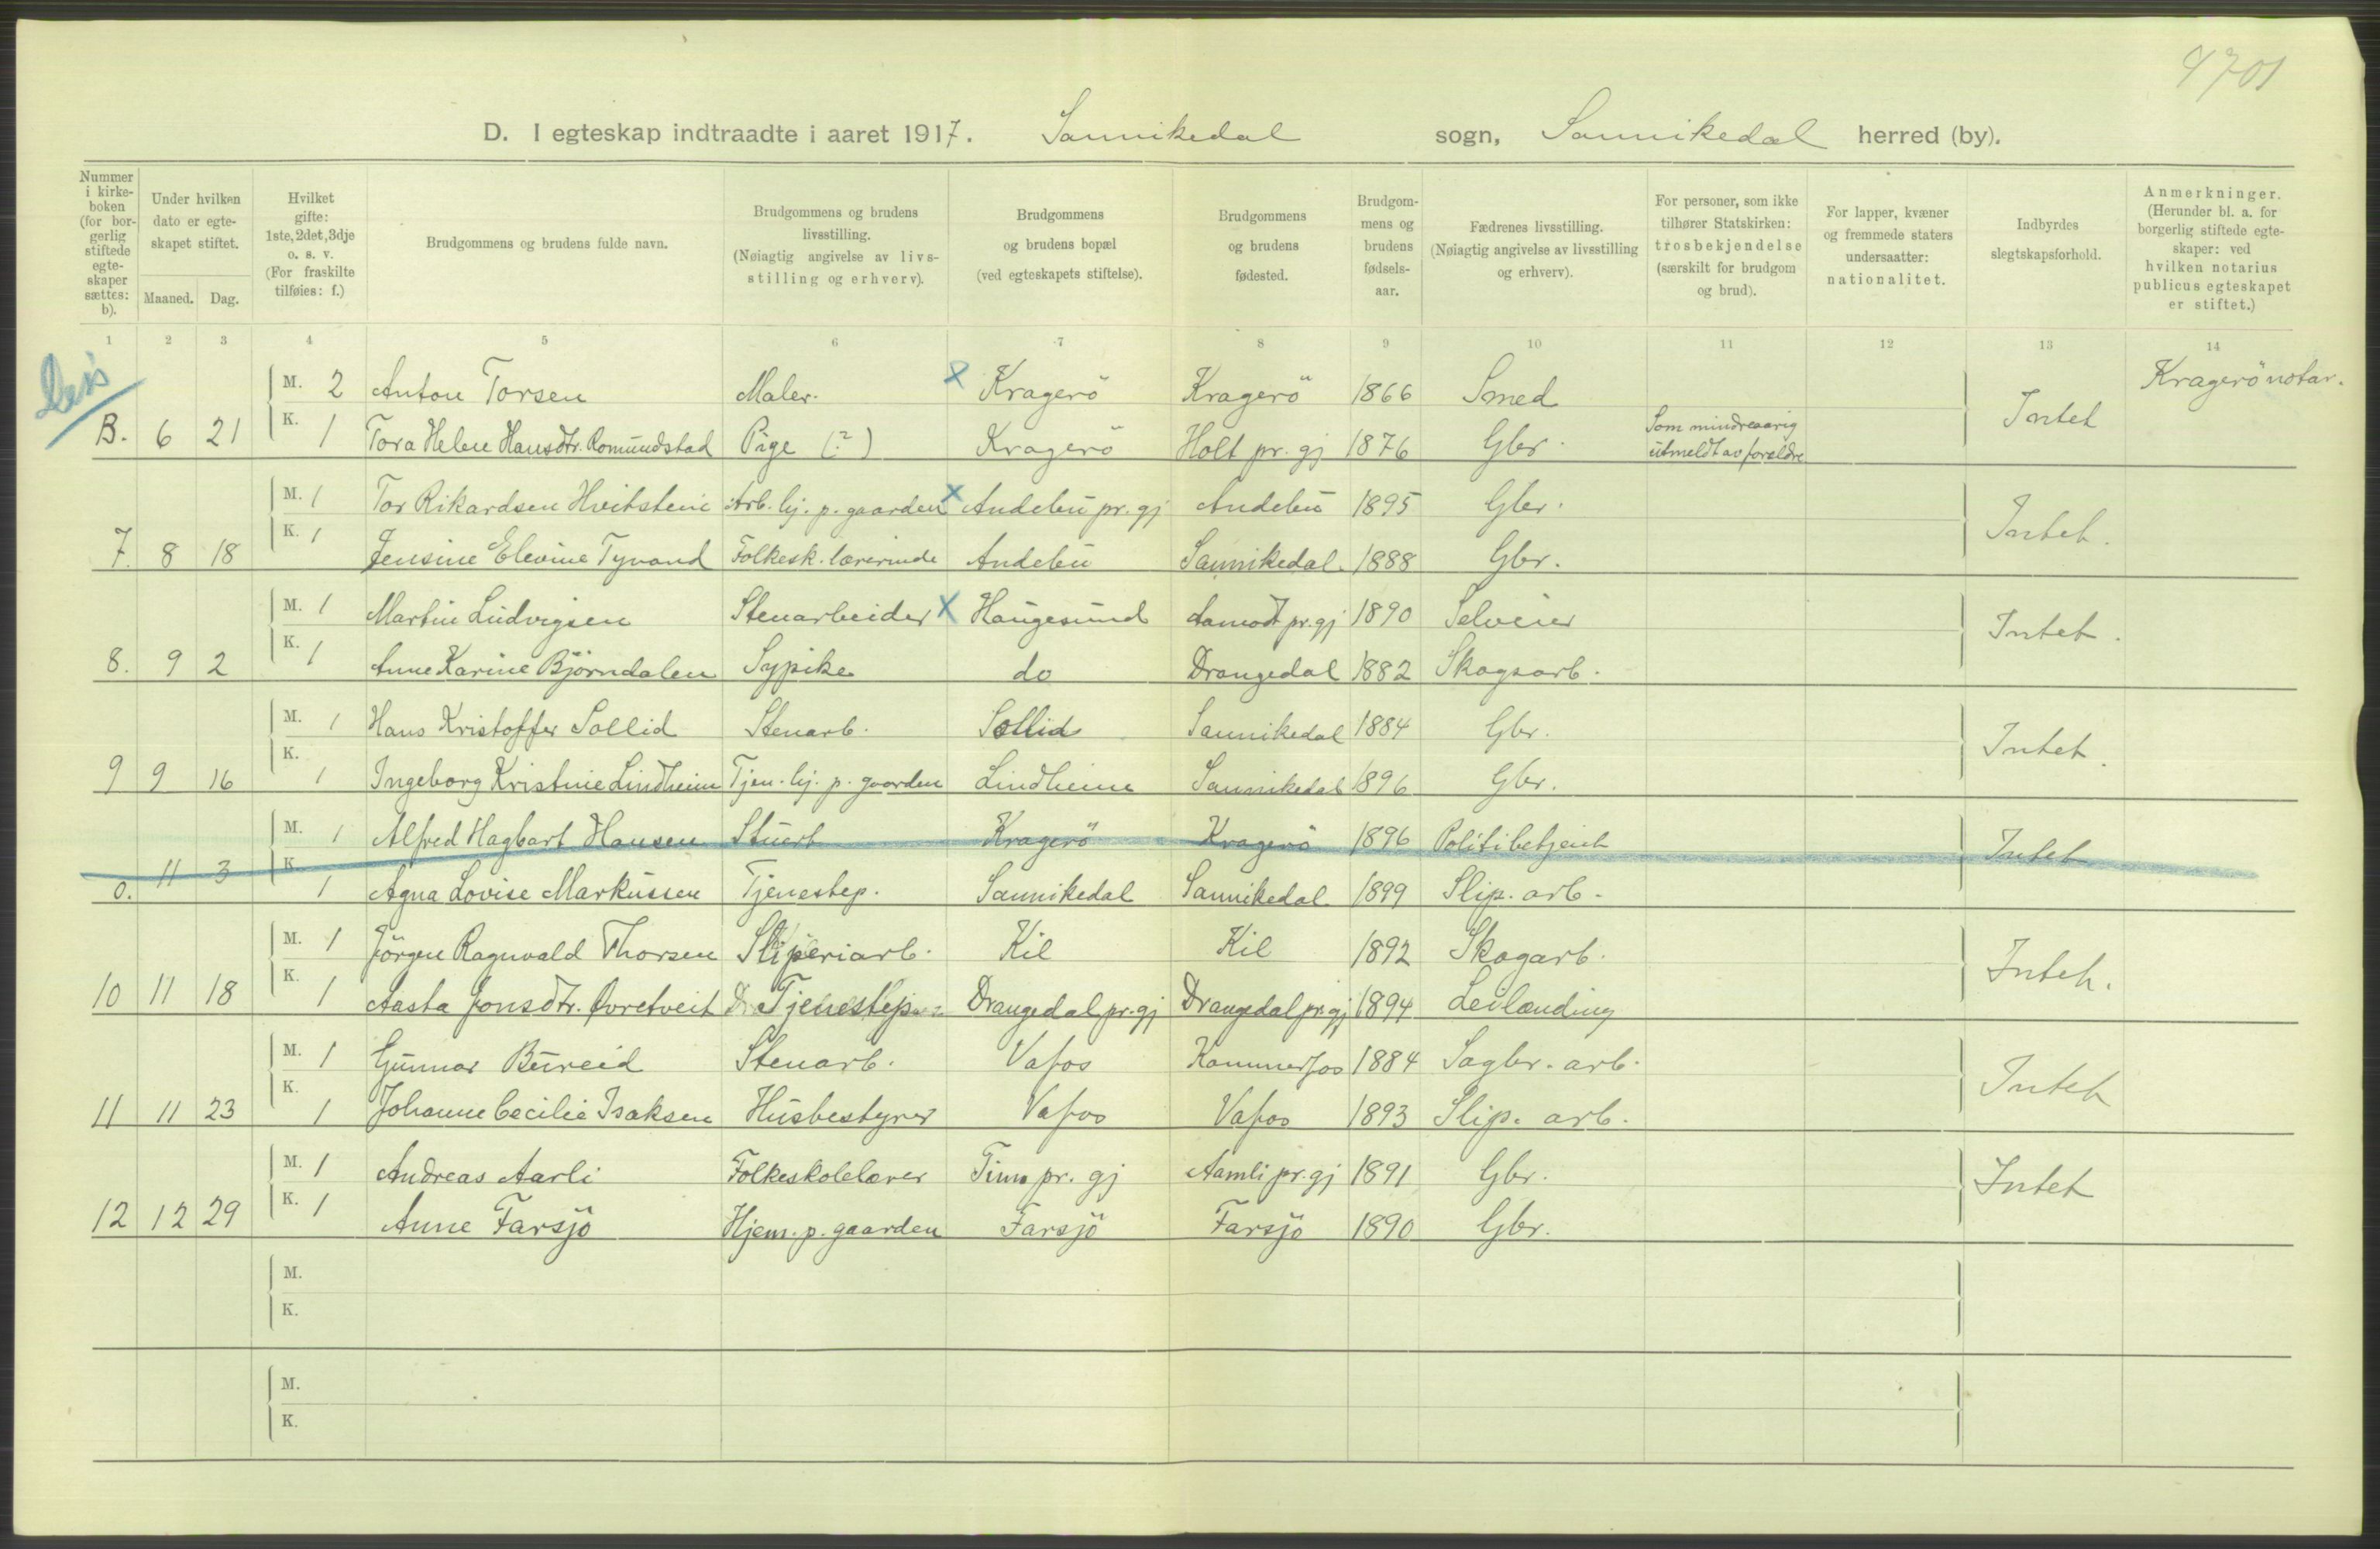 4701
D. I egteskap indtraadte i aaret 1917. Sannikedal sogn, Sannikedal herred (by).
Nummer i kirke-boken (for bor-gerlig stiftede egte-skaper sættes: b).
Under hvilken dato er egte-skapet stiftet.
Maaned. Dag.
Hvilket gifte: 1ste, 2det, 3dje o. s. v. (For fraskilte tilføies: f.)
Brudgommens og brudens fulde navn.
Brudgommens og brudens livsstilling. (Nøiagtig angivelse av livs-stilling og erhverv).
Brudgommens og brudens bopæl (ved egteskapets stiftelse).
Brudgommens og brudens fødested.
Brudgom-mens og brudens fødsels-aar.
Fædrenes livsstilling. (Nøiagtig angivelse av livsstilling og erhverv).
For personer, som ikke tilhører Statskirken: trosbekjendelse (særskilt for brudgom og brud).
For lapper, kvæner og fremmede staters undersaatter: nationalitet.
Indbyrdes slegtskapsforhold.
Anmerkninger. (Herunder bl. a. for borgerlig stiftede egte-skaper: ved hvilken notarius publicus egteskapet er stiftet.)
1 2 3 4 5 6 7 8 9 10 11 12 13 14
M. 2 Anton Torsen Maler. x Kragerö Kragerö 1866 Smed Intet Kragerö notar.
B. 6 21 K. 1 Tora Helene Hansdtr. Romundstad Pige (?) Kragerö Holt pr. gj 1876 Gbr. Som mindreaarig utmeldt av forældre
M. 1 Tor Rikardsen Hvitstein Arb. hj. p. gaarden x Andebu pr. gj Andebu 1895 Gbr. Intet.
7. 8 18 K. 1 Jensine Elevine Tyvand Folkesk. lærerinde Andebu Sannikedal 1888 Gbr.
M. 1 Martin Ludvigsen Stenarbeider x Haugesund Aamodt pr. gj 1890 Selveier Intet.
8. 9 2 K. 1 Anne Karine Björndalen Sypike do Drangedal 1882 Skogsarb.
M. 1 Hans Kristoffer Sollid Stenarb. Sollid Sannikedal 1884 Gbr. Intet.
9 9 16 K. 1 Ingeborg Kristine Lindheim Tjen. hj. p. gaarden Lindheim Sannikedal 1896 Gbr.
M. 1 Alfred Hagbart Hansen Stuert Kragerö Kragerö 1896 Politibetjent Intet
0. 11 3 K. 1 Agna Lovise Markussen Tjenestep. Sannikedal Sannikedal 1899 Slip. arb.
M. 1 Jörgen Ragnvald Thorsen Sliperiarb. Kil Kil 1892 Skogarb. Intet.
10 11 18 K. 1 Aasta Jonsdtr. Øvretveit Tjenestep. Drangedal pr. gj Drangedal pr. gj 1894 Leilænding
M. 1 Gunnar Bureid Stenarb. Vafos Kammerfos 1884 Sagbr. arb. Intet
11 11 23 K. 1 Johanne Cecilie Isaksen Husbestyrer Vafos Vafos 1893 Slip. arb.
M. 1 Andreas Aarli Folkeskolelærer Time pr. gj Aamli pr. gj 1891 Gbr. Intet
12 12 29 K. 1 Anne Farsjö Hjem. p. gaarden Farsjö Farsjö 1890 Gbr.
M.
K.
M.
K.